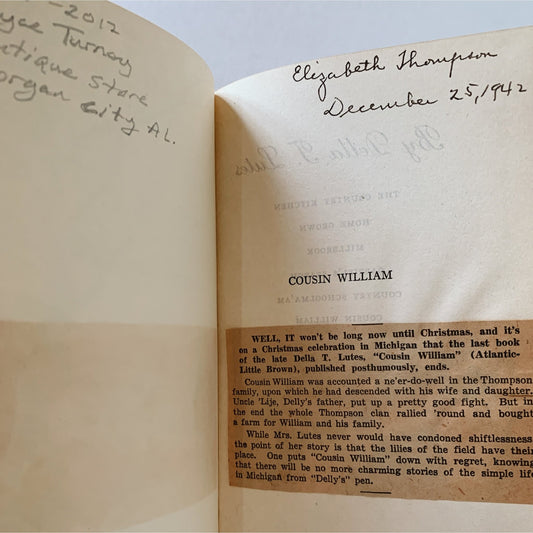 -2012
Turney
Antique Store
Morgan City AL.
Elizabeth Thompson
December 25, 1942
By Della T. Lutes
THE COUNTRY KITCHEN
HOME GROWN
MILLBROOK
COUNTRY SCHOOLMA'AM
COUSIN WILLIAM
COUSIN WILLIAM
WELL, IT won't be long now until Christmas, and it's
on a Christmas celebration in Michigan that the last book
of the late Della T. Lutes, "Cousin William" (Atlantic-
Little Brown), published posthumously, ends.
Cousin William was accounted a ne'er-do-well in the Thompson
family, upon which he had descended with his wife and daughter.
Uncle 'Lije, Delly's father, put up a pretty good fight. But in
the end the whole Thompson clan rallied 'round and bought
a farm for William and his family.
While Mrs. Lutes never would have condoned shiftlessness
the point of her story is that the lilies of the field have their
place. One puts "Cousin William" down with regret, knowing
that there will be no more charming stories of the simple life
in Michigan from "Delly's" pen.